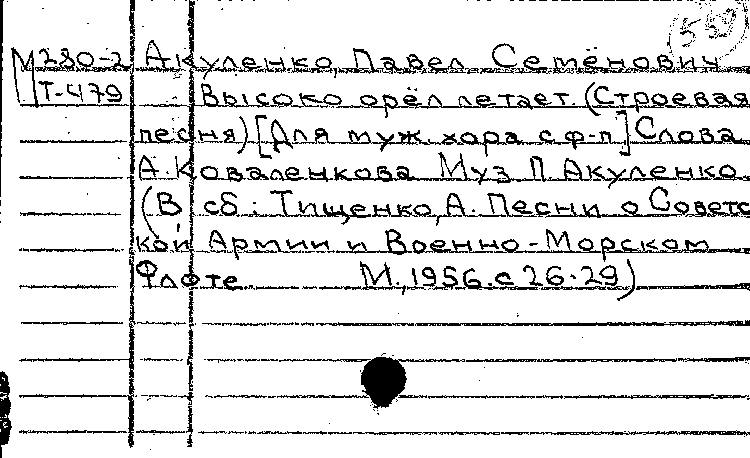 559
М280-2 Акуленко, Павел Семёнович
Т-479 Высоко орёл летает. (Строевая
песня) [Для муж. хора с ф-п.] Слова
А. Коваленкова Муз П. Акуленко.
(В сб.: Тищенко, А. Песни о Советс
кой Армии и Военно-Морском
Флоте М., 1956. с 26-29)